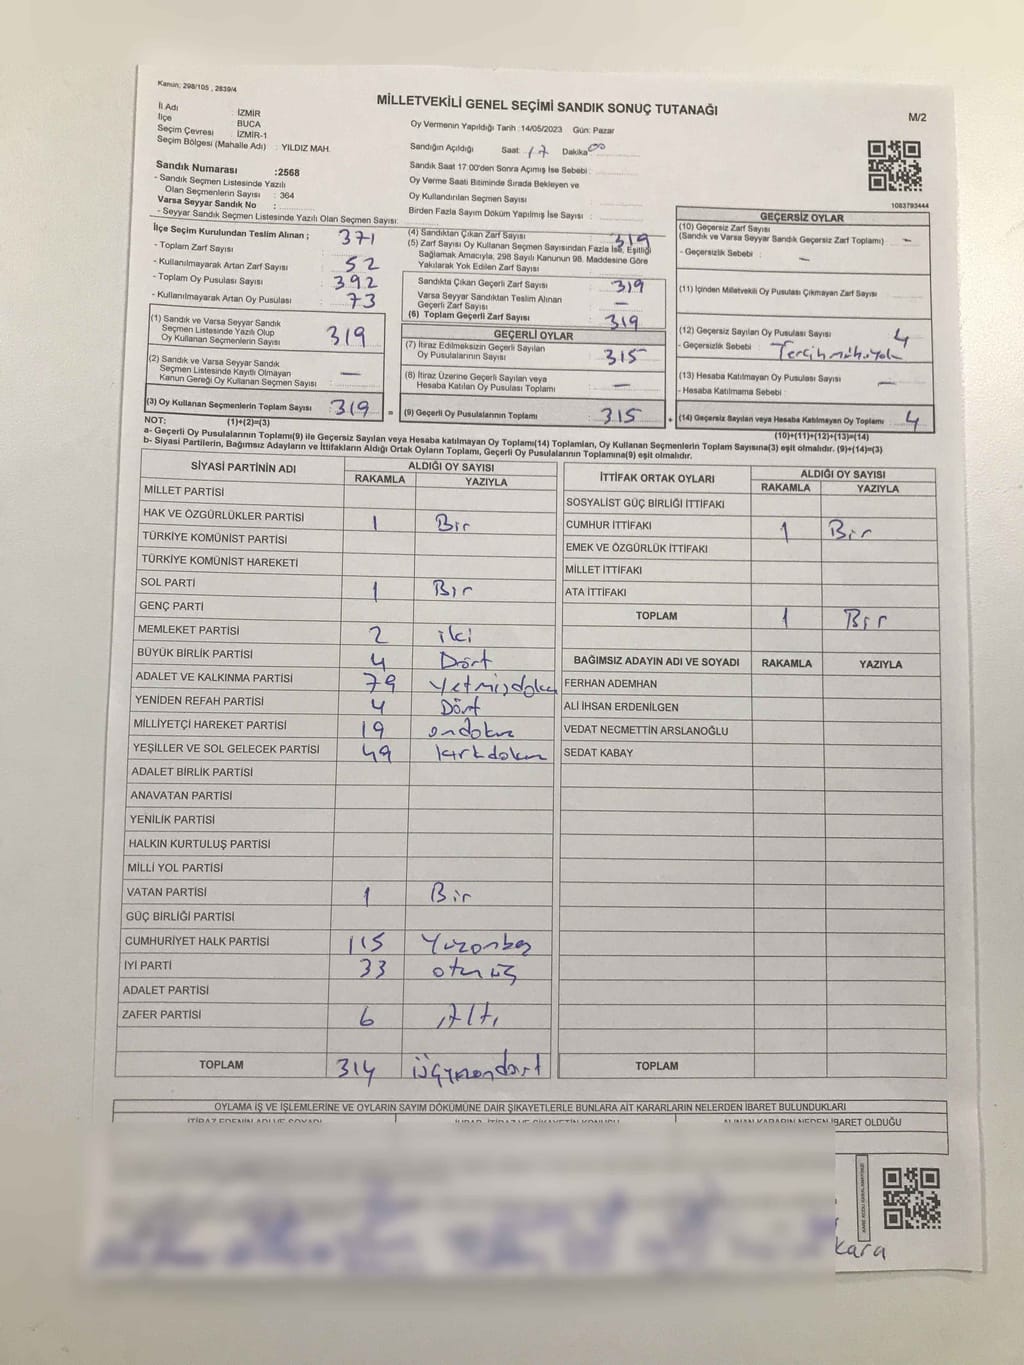 Kanun: 298/105 , 2839/4
MİLLETVEKİLİ GENEL SEÇİMİ SANDIK SONUÇ TUTANAĞI
M/2
İl Adı : İZMİR
İlçe : BUCA
Seçim Çevresi : İZMİR-1
Seçim Bölgesi (Mahalle Adı) : YILDIZ MAH.
Oy Vermenin Yapıldığı Tarih :14/05/2023 Gün: Pazar
Sandığın Açıldığı Saat: 17 Dakika 00
Sandık Saat 17:00'den Sonra Açımış İse Sebebi :
Oy Verme Saati Bitiminde Sırada Bekleyen ve
Oy Kullandırılan Seçmen Sayısı :
Birden Fazla Sayım Döküm Yapılmış İse Sayısı :
1083793444
Sandık Numarası :2568
- Sandık Seçmen Listesinde Yazılı
Olan Seçmenlerin Sayısı : 364
Varsa Seyyar Sandık No :
- Seyyar Sandık Seçmen Listesinde Yazılı Olan Seçmen Sayısı:
İlçe Seçim Kurulundan Teslim Alınan ;
- Toplam Zarf Sayısı 371
- Kullanılmayarak Artan Zarf Sayısı 52
- Toplam Oy Pusulası Sayısı 392
- Kullanılmayarak Artan Oy Pusulası 73
(1) Sandık ve Varsa Seyyar Sandık
Seçmen Listesinde Yazılı Olup
Oy Kullanan Seçmenlerin Sayısı 319
(2) Sandık ve Varsa Seyyar Sandık
Seçmen Listesinde Kayıtlı Olmayan
Kanun Gereği Oy Kullanan Seçmen Sayısı : —
(3) Oy Kullanan Seçmenlerin Toplam Sayısı 319 =
(1)+(2)=(3)
(4) Sandıktan Çıkan Zarf Sayısı 319
(5) Zarf Sayısı Oy Kullanan Seçmen Sayısından Fazla İse, Eşitliği
Sağlamak Amacıyla, 298 Sayılı Kanunun 98. Maddesine Göre
Yakılarak Yok Edilen Zarf Sayısı
Sandıkta Çıkan Geçerli Zarf Sayısı 319
Varsa Seyyar Sandıktan Teslim Alınan
Geçerli Zarf Sayısı —
(6) Toplam Geçerli Zarf Sayısı 319
GEÇERLİ OYLAR
(7) İtiraz Edilmeksizin Geçerli Sayılan
Oy Pusulalarının Sayısı 315
(8) İtiraz Üzerine Geçerli Sayılan veya
Hesaba Katılan Oy Pusulası Toplamı —
(9) Geçerli Oy Pusulalarının Toplamı 315 +
GEÇERSİZ OYLAR
(10) Geçersiz Zarf Sayısı
(Sandık ve Varsa Seyyar Sandık Geçersiz Zarf Toplamı) —
- Geçersizlik Sebebi : —
(11) İçinden Milletvekili Oy Pusulası Çıkmayan Zarf Sayısı
(12) Geçersiz Sayılan Oy Pusulası Sayısı 4
- Geçersizlik Sebebi :
(13) Hesaba Katılmayan Oy Pusulası Sayısı —
- Hesaba Katılmama Sebebi :
(14) Geçersiz Sayılan veya Hesaba Katılmayan Oy Toplamı 4
(10)+(11)+(12)+(13)=(14)
NOT:
a- Geçerli Oy Pusulalarının Toplamı(9) ile Geçersiz Sayılan veya Hesaba katılmayan Oy Toplamı(14) Toplamları, Oy Kullanan Seçmenlerin Toplam Sayısına(3) eşit olmalıdır. (9)+(14)=(3)
b- Siyasi Partilerin, Bağımsız Adayların ve İttifakların Aldığı Ortak Oyların Toplamı, Geçerli Oy Pusulalarının Toplamına(9) eşit olmalıdır.
SİYASİ PARTİNİN ADI ALDIĞI OY SAYISI
RAKAMLA YAZIYLA
MİLLET PARTİSİ
HAK VE ÖZGÜRLÜKLER PARTİSİ 1 Bir
TÜRKİYE KOMÜNİST PARTİSİ
TÜRKİYE KOMÜNİST HAREKETİ
SOL PARTİ 1 Bir
GENÇ PARTİ
MEMLEKET PARTİSİ 2 iki
BÜYÜK BİRLİK PARTİSİ 4 Dört
ADALET VE KALKINMA PARTİSİ 79 Yetmişdoku
YENİDEN REFAH PARTİSİ 4 Dört
MİLLİYETÇİ HAREKET PARTİSİ 19 ondokuz
YEŞİLLER VE SOL GELECEK PARTİSİ 49 kırkdokuz
ADALET BİRLİK PARTİSİ
ANAVATAN PARTİSİ
YENİLİK PARTİSİ
HALKIN KURTULUŞ PARTİSİ
MİLLİ YOL PARTİSİ
VATAN PARTİSİ 1 Bir
GÜÇ BİRLİĞİ PARTİSİ
CUMHURİYET HALK PARTİSİ 115 Yüzonbeş
İYİ PARTİ 33 otuzüç
ADALET PARTİSİ
ZAFER PARTİSİ 6 Altı
TOPLAM 314 üçyüzondört
İTTİFAK ORTAK OYLARI ALDIĞI OY SAYISI
RAKAMLA YAZIYLA
SOSYALİST GÜÇ BİRLİĞİ İTTİFAKI
CUMHUR İTTİFAKI 1 Bir
EMEK VE ÖZGÜRLÜK İTTİFAKI
MİLLET İTTİFAKI
ATA İTTİFAKI
TOPLAM 1 Bir
BAĞIMSIZ ADAYIN ADI VE SOYADI RAKAMLA YAZIYLA
FERHAN ADEMHAN
ALİ İHSAN ERDENİLGEN
VEDAT NECMETTİN ARSLANOĞLU
SEDAT KABAY
TOPLAM
OYLAMA İŞ VE İŞLEMLERİNE VE OYLARIN SAYIM DÖKÜMÜNE DAİR ŞİKAYETLERLE BUNLARA AİT KARARLARIN NELERDEN İBARET BULUNDUKLARI
İTİRAZ EDENİN ADI VE SOYADI ALINAN KARARIN NEDEN İBARET OLDUĞU
kara